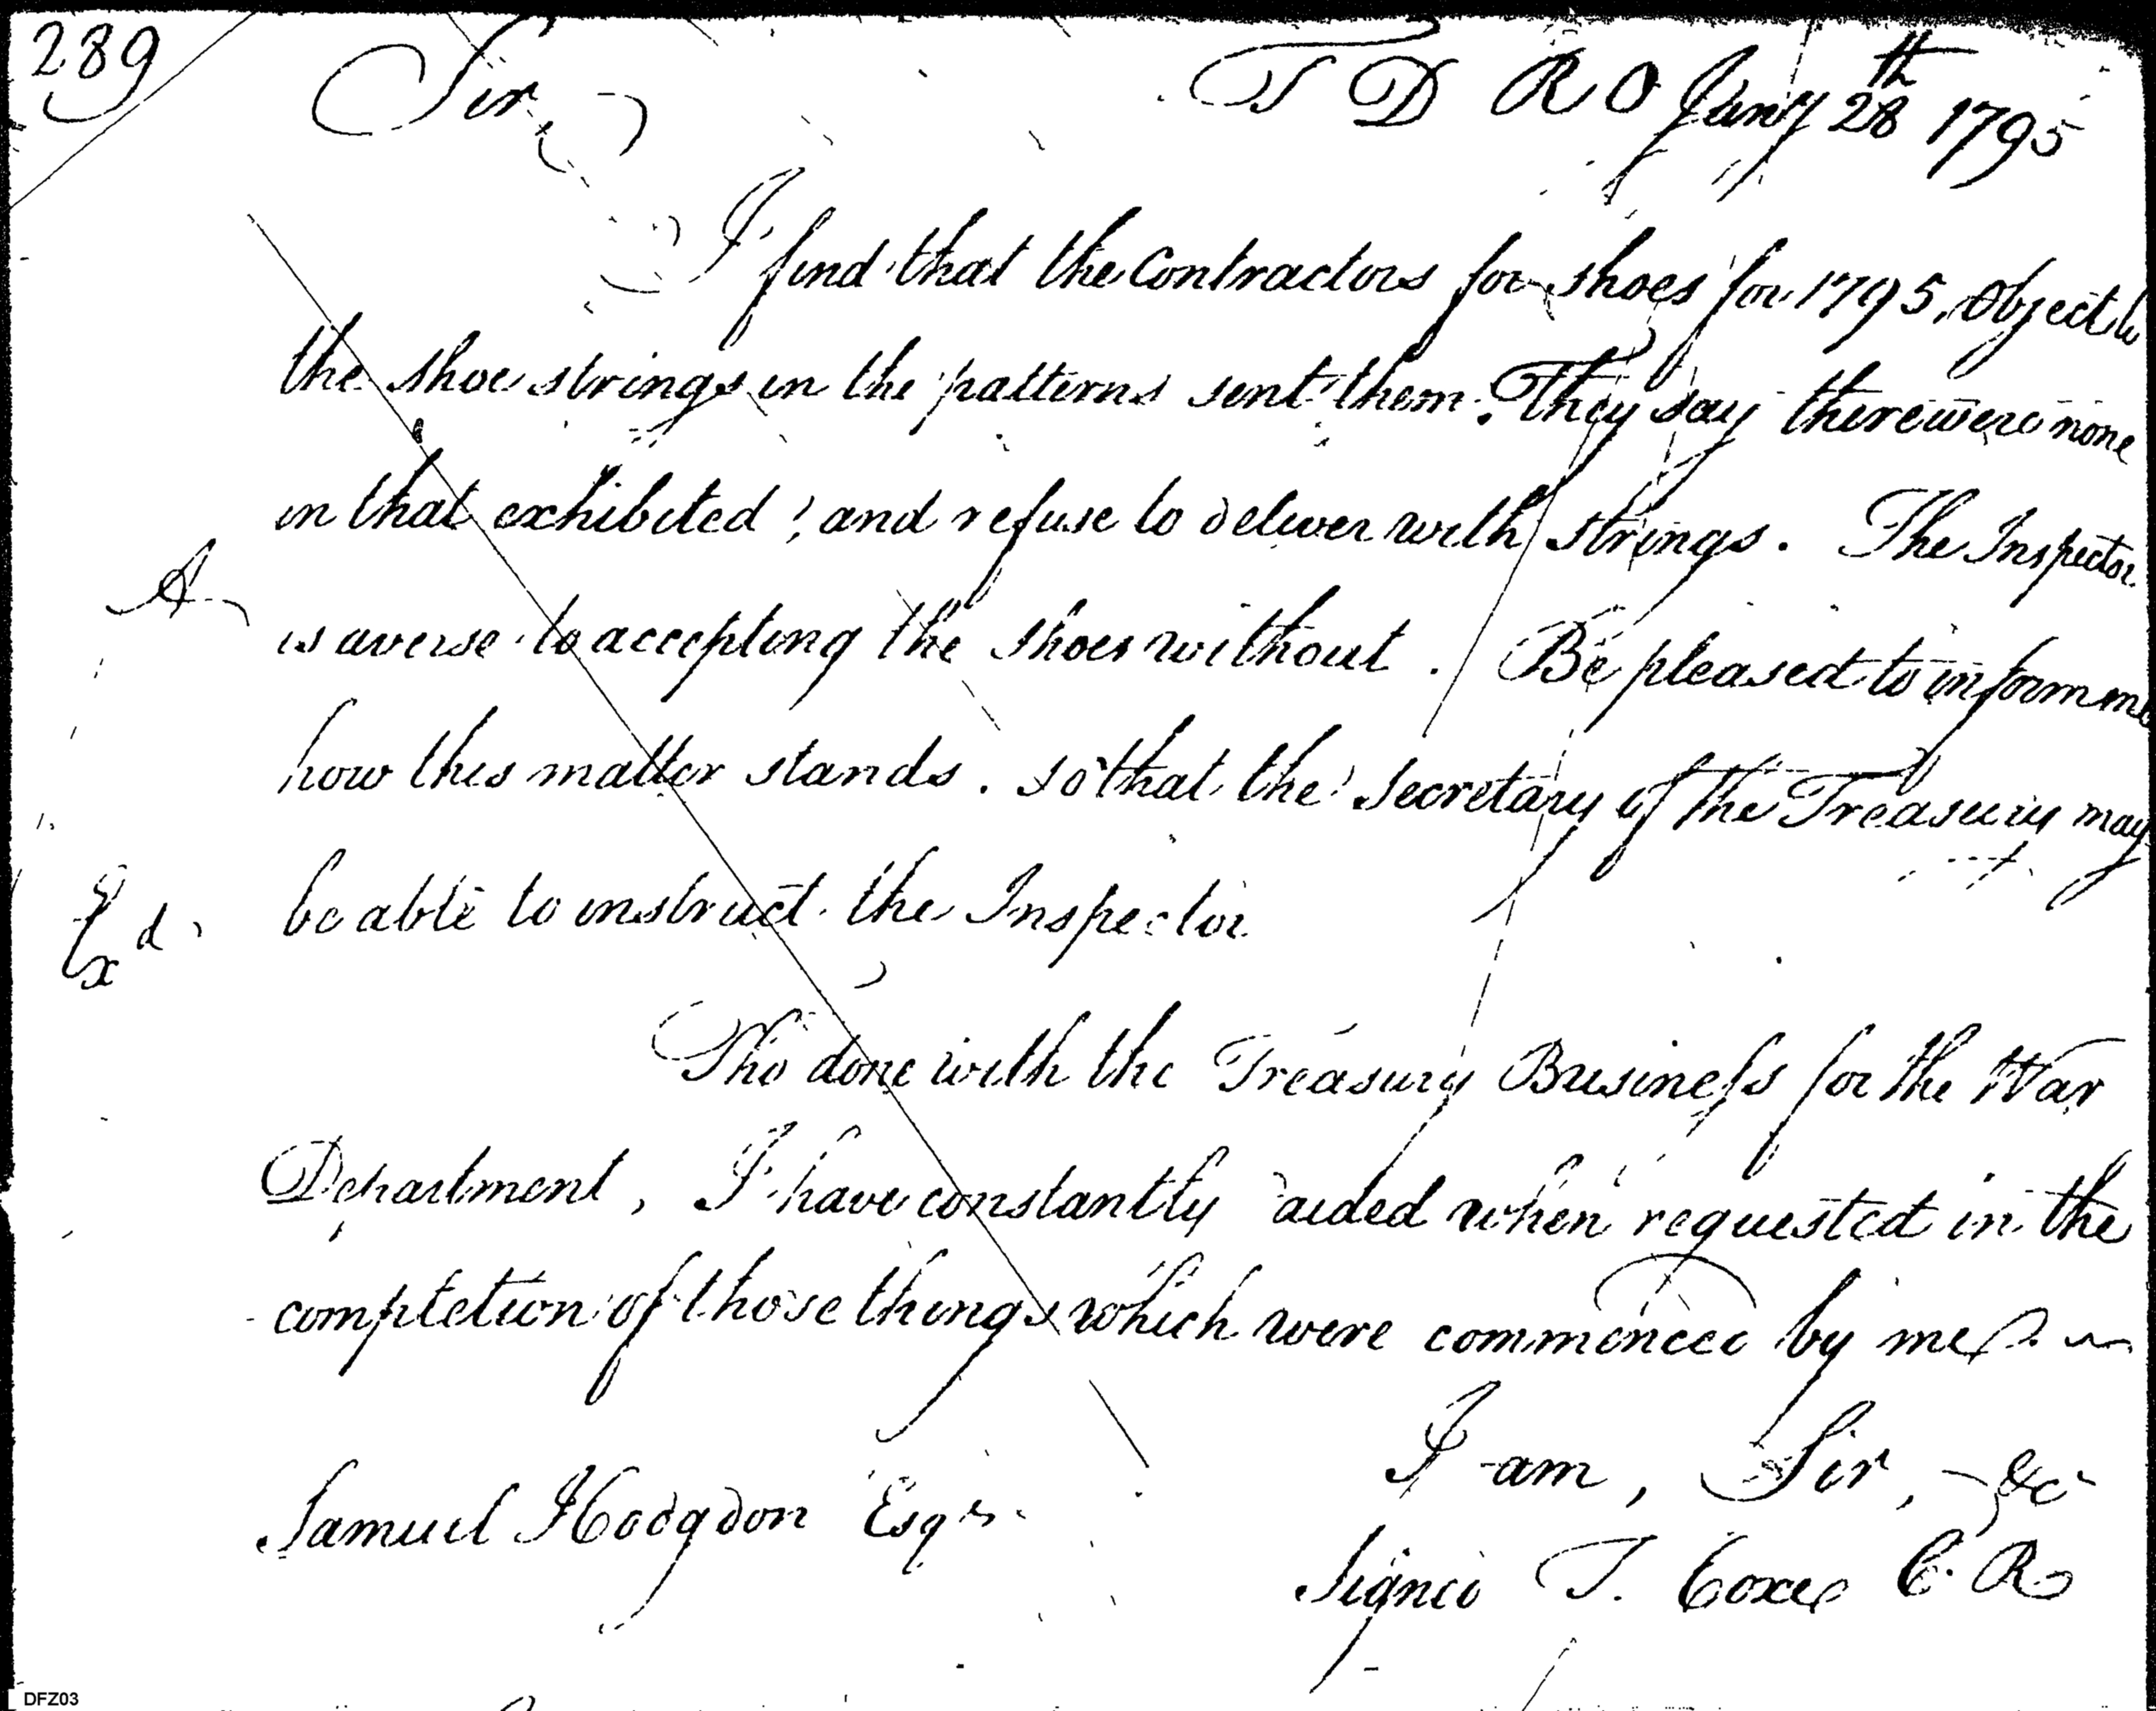 289
Sir, T D R O Jany 28th 1795
I find that the Contractors for shoes for 1795, object to
the shoe strings in the patterns sent them. They say there were none
in that exhibited, and refuse to deliver with strings. The Inspector
A
is averse to accepting the shoes without. Be pleased to inform me
how this matter stands. so that the Secretary of the Treasury may
Exd
be able to instruct the Inspector
Tho done with the Treasury Business for the War
Department, I have constantly aided when requested in the
completion of those things which were commenced by me.
I am, Sir, &c
Samuel Hodgdon Esqr.
Signed T. Coxe C. R
DFZ03